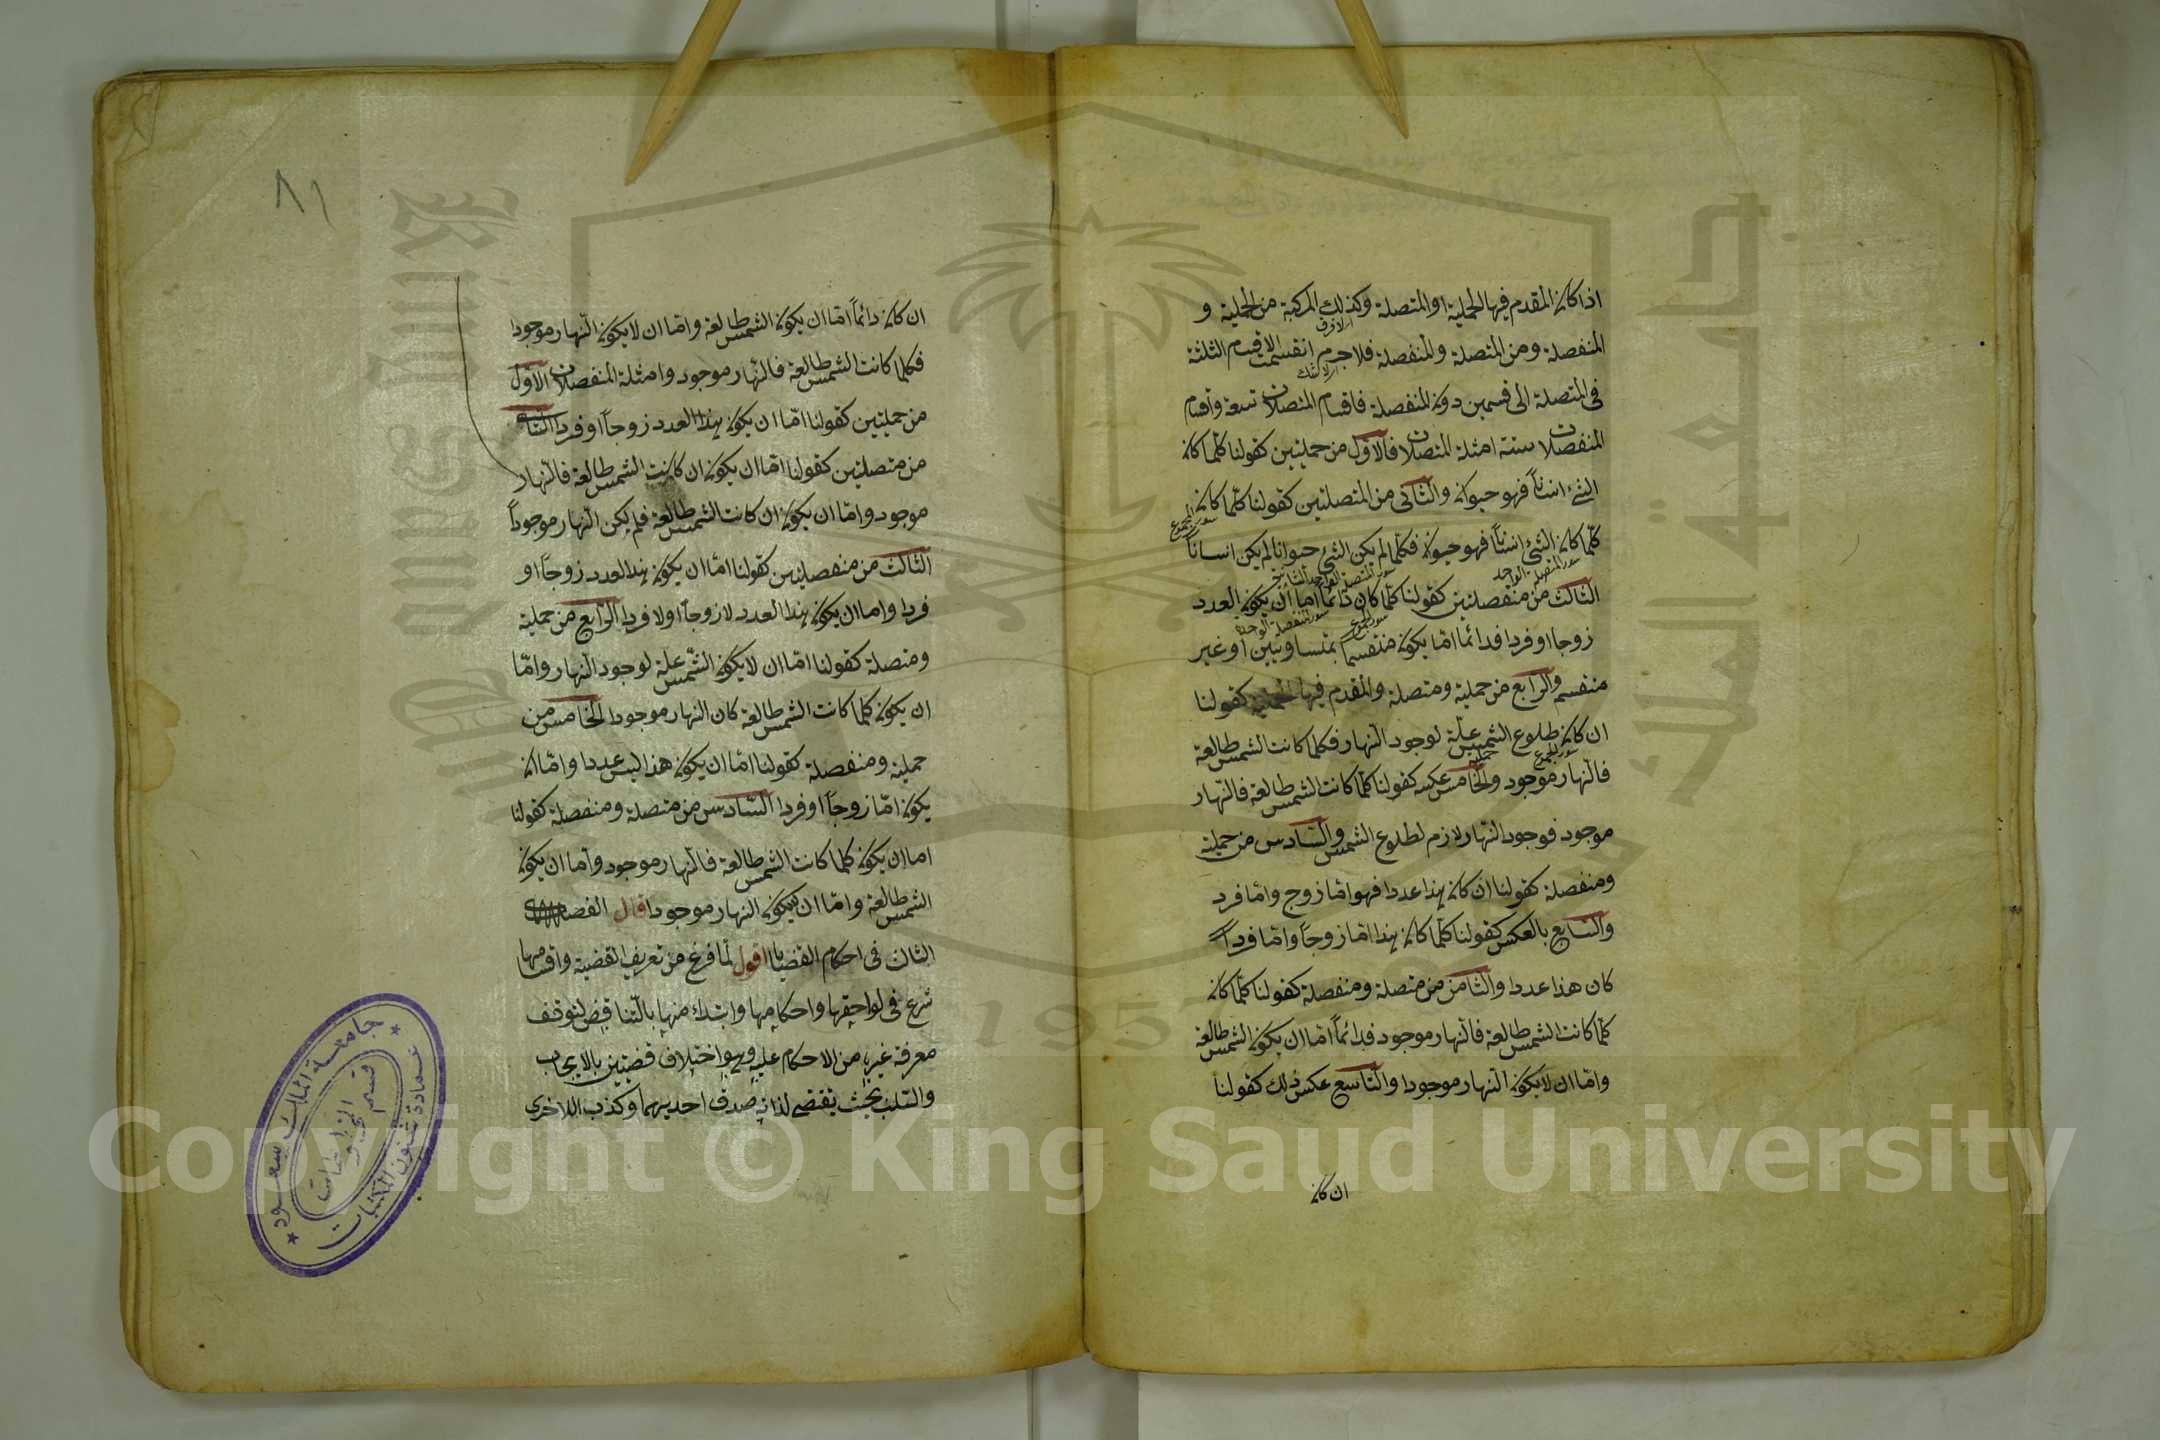 اذا كان المقدم فيها الحملية او المتصلة وكذلك المركبة من الحملية و
المنفصلة ومن المتصلة والمنفصلة فلا جرم انقسمت الاقسام الثلثة
فى المتصلة الى قسمين دون المنفصلة فاقسام المتصلات تسعة واقسام
المنفصلات ستة امثلة المتصلات فالاول من حمليتين كقولنا كلما كان
الشئ انسانا فهو حيوان والثانى من المتصلتين كقولنا كلما كان
كلما كان الشئ انسانا فهو حيوان فكلما لم يكن الشئ حيوانا لم يكن انسانا
الثالث من منفصلتين كقولنا كلما كان دائما اما ان يكون العدد
زوجا او فردا فدائما اما يكون منقسما بمتساويين او غير
منقسم والرابع من حملية ومتصلة والمقدم فيها الحملية كقولنا
ان كان طلوع الشمس علة لوجود النهار فكلما كانت الشمس طالعة
فالنهار موجود والخامس عكسه كقولنا كلما كانت الشمس طالعة فالنهار
موجود فوجود النهار لازم لطلوع الشمس والسادس من حملية
ومنفصلة كقولنا ان كان هذا عددا فهو اما زوج واما فرد
والسابع بالعكس كقولنا كلما كان هذا اما زوجا واما فردا
كان هذا عددا والثامن من متصلة ومنفصلة كقولنا كلما كان
كلما كانت الشمس طالعة فالنهار موجود فدائما اما ان يكون الشمس طالعة
واما ان لا يكون النهار موجودا والتاسع عكس ذلك كقولنا
ان كان
٨١
ان كان دائما اما ان يكون الشمس طالعة واما ان لا يكون النهار موجودا
فكلما كانت الشمس طالعة فالنهار موجود وامثلة المنفصلات الاول
من حمليتين كقولنا اما ان يكون هذا العدد زوجا او فردا الثانى
من متصلتين كقولنا اما ان يكون ان كانت الشمس طالعة فالنهار
موجود واما ان يكون ان كانت الشمس طالعة فلم يكن النهار موجودا
الثالث من منفصلتين كقولنا اما ان يكون هذا العدد زوجا او
فردا واما ان يكون هذا العدد لا زوجا او لا فردا الرابع من حملية
ومتصلة كقولنا اما ان لا يكون الشمس علة لوجود النهار واما
ان يكون كلما كانت الشمس طالعة كان النهار موجودا الخامس من
حملية ومنفصلة كقولنا اما ان يكون هذا ليس عددا واما ان
يكون اما زوجا او فردا السادس من متصلة ومنفصلة كقولنا
اما ان يكون كلما كانت الشمس طالعة فالنهار موجود واما ان يكون
الشمس طالعة واما ان يكون النهار موجودا قال الفصل
الثالث فى احكام القضايا اقول لما فرغ من تعريف القضية واقسامها
شرع فى لواحقها واحكامها وابتداء منها بالتناقض لتوقف
معرفة غيره من الاحكام عليه وهو اختلاف قضيتين بالايجاب
والسلب بحيث يقتضى لذاته صدق احديهما وكذب الاخرى
جامعة الملك سعود
عمادة شئون المكتبات
قسم المخطوطات
1957
Copyright © King Saud University